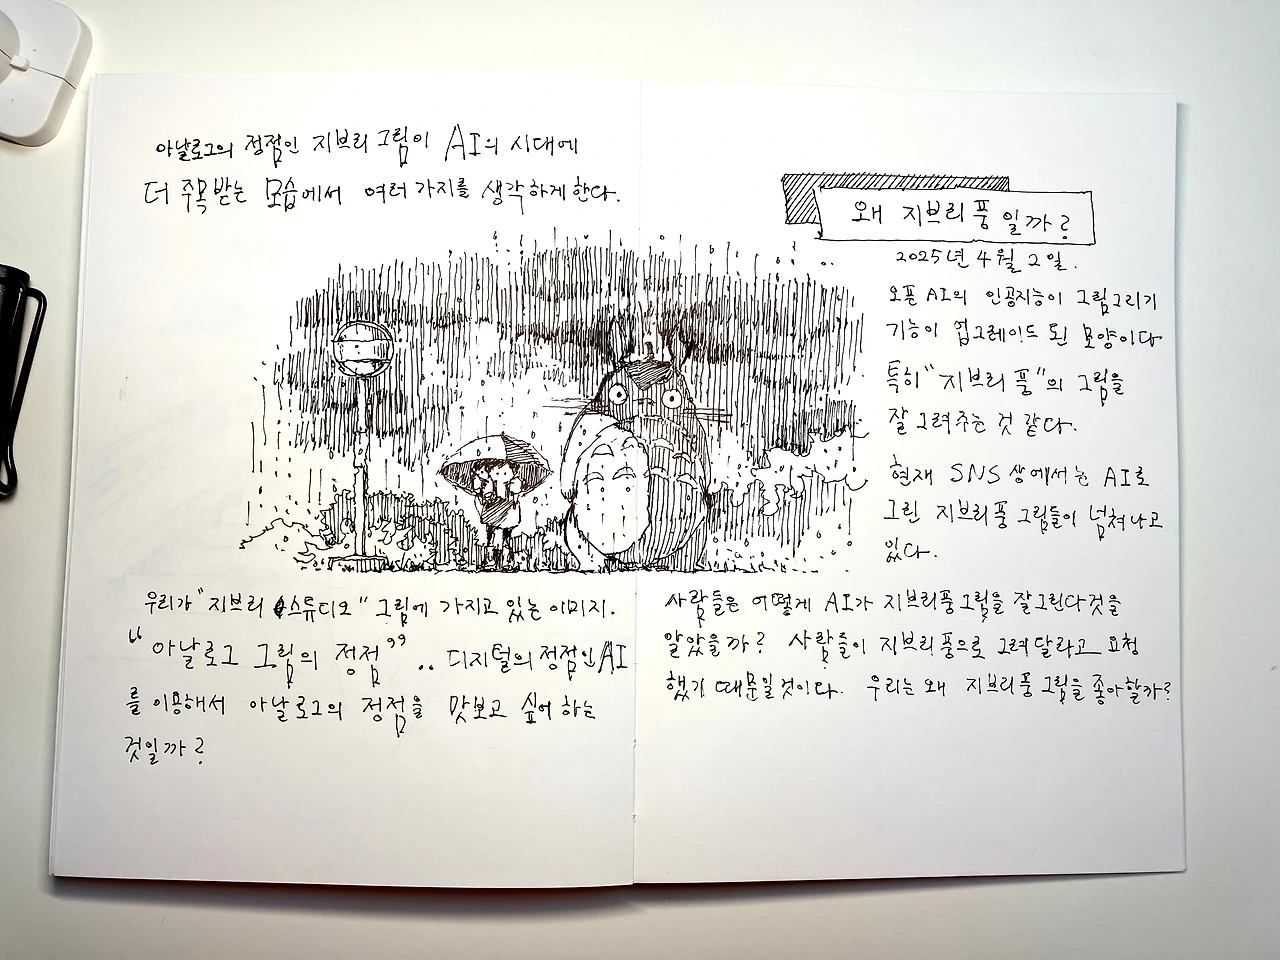 아날로그의 정점인 지브리 그림이 AI의 시대에
더 주목받는 모습에서 여러가지를 생각하게 한다.
우리가 "지브리 스튜디오" 그림에 가지고 있는 이미지.
"아날로그 그림의 정점" .. 디지털의 정점인 AI
를 이용해서 아날로그의 정점을 맛보고 싶어 하는
것일까?
왜 지브리풍일까?
2025년 4월 2일.
오픈AI의 인공지능이 그림그리기
기능이 업그레이드 된 모양이다
특히 "지브리 풍"의 그림을
잘 그려주는 것 같다.
현재 SNS상에서는 AI로
그린 지브리풍 그림들이 넘쳐나고
있다.
사람들은 어떻게 AI가 지브리풍그림을 잘그린다것을
알았을까? 사람들이 지브리풍으로 그려달라고 요청
했기 때문일것이다. 우리는 왜 지브리풍그림을 좋아할까?